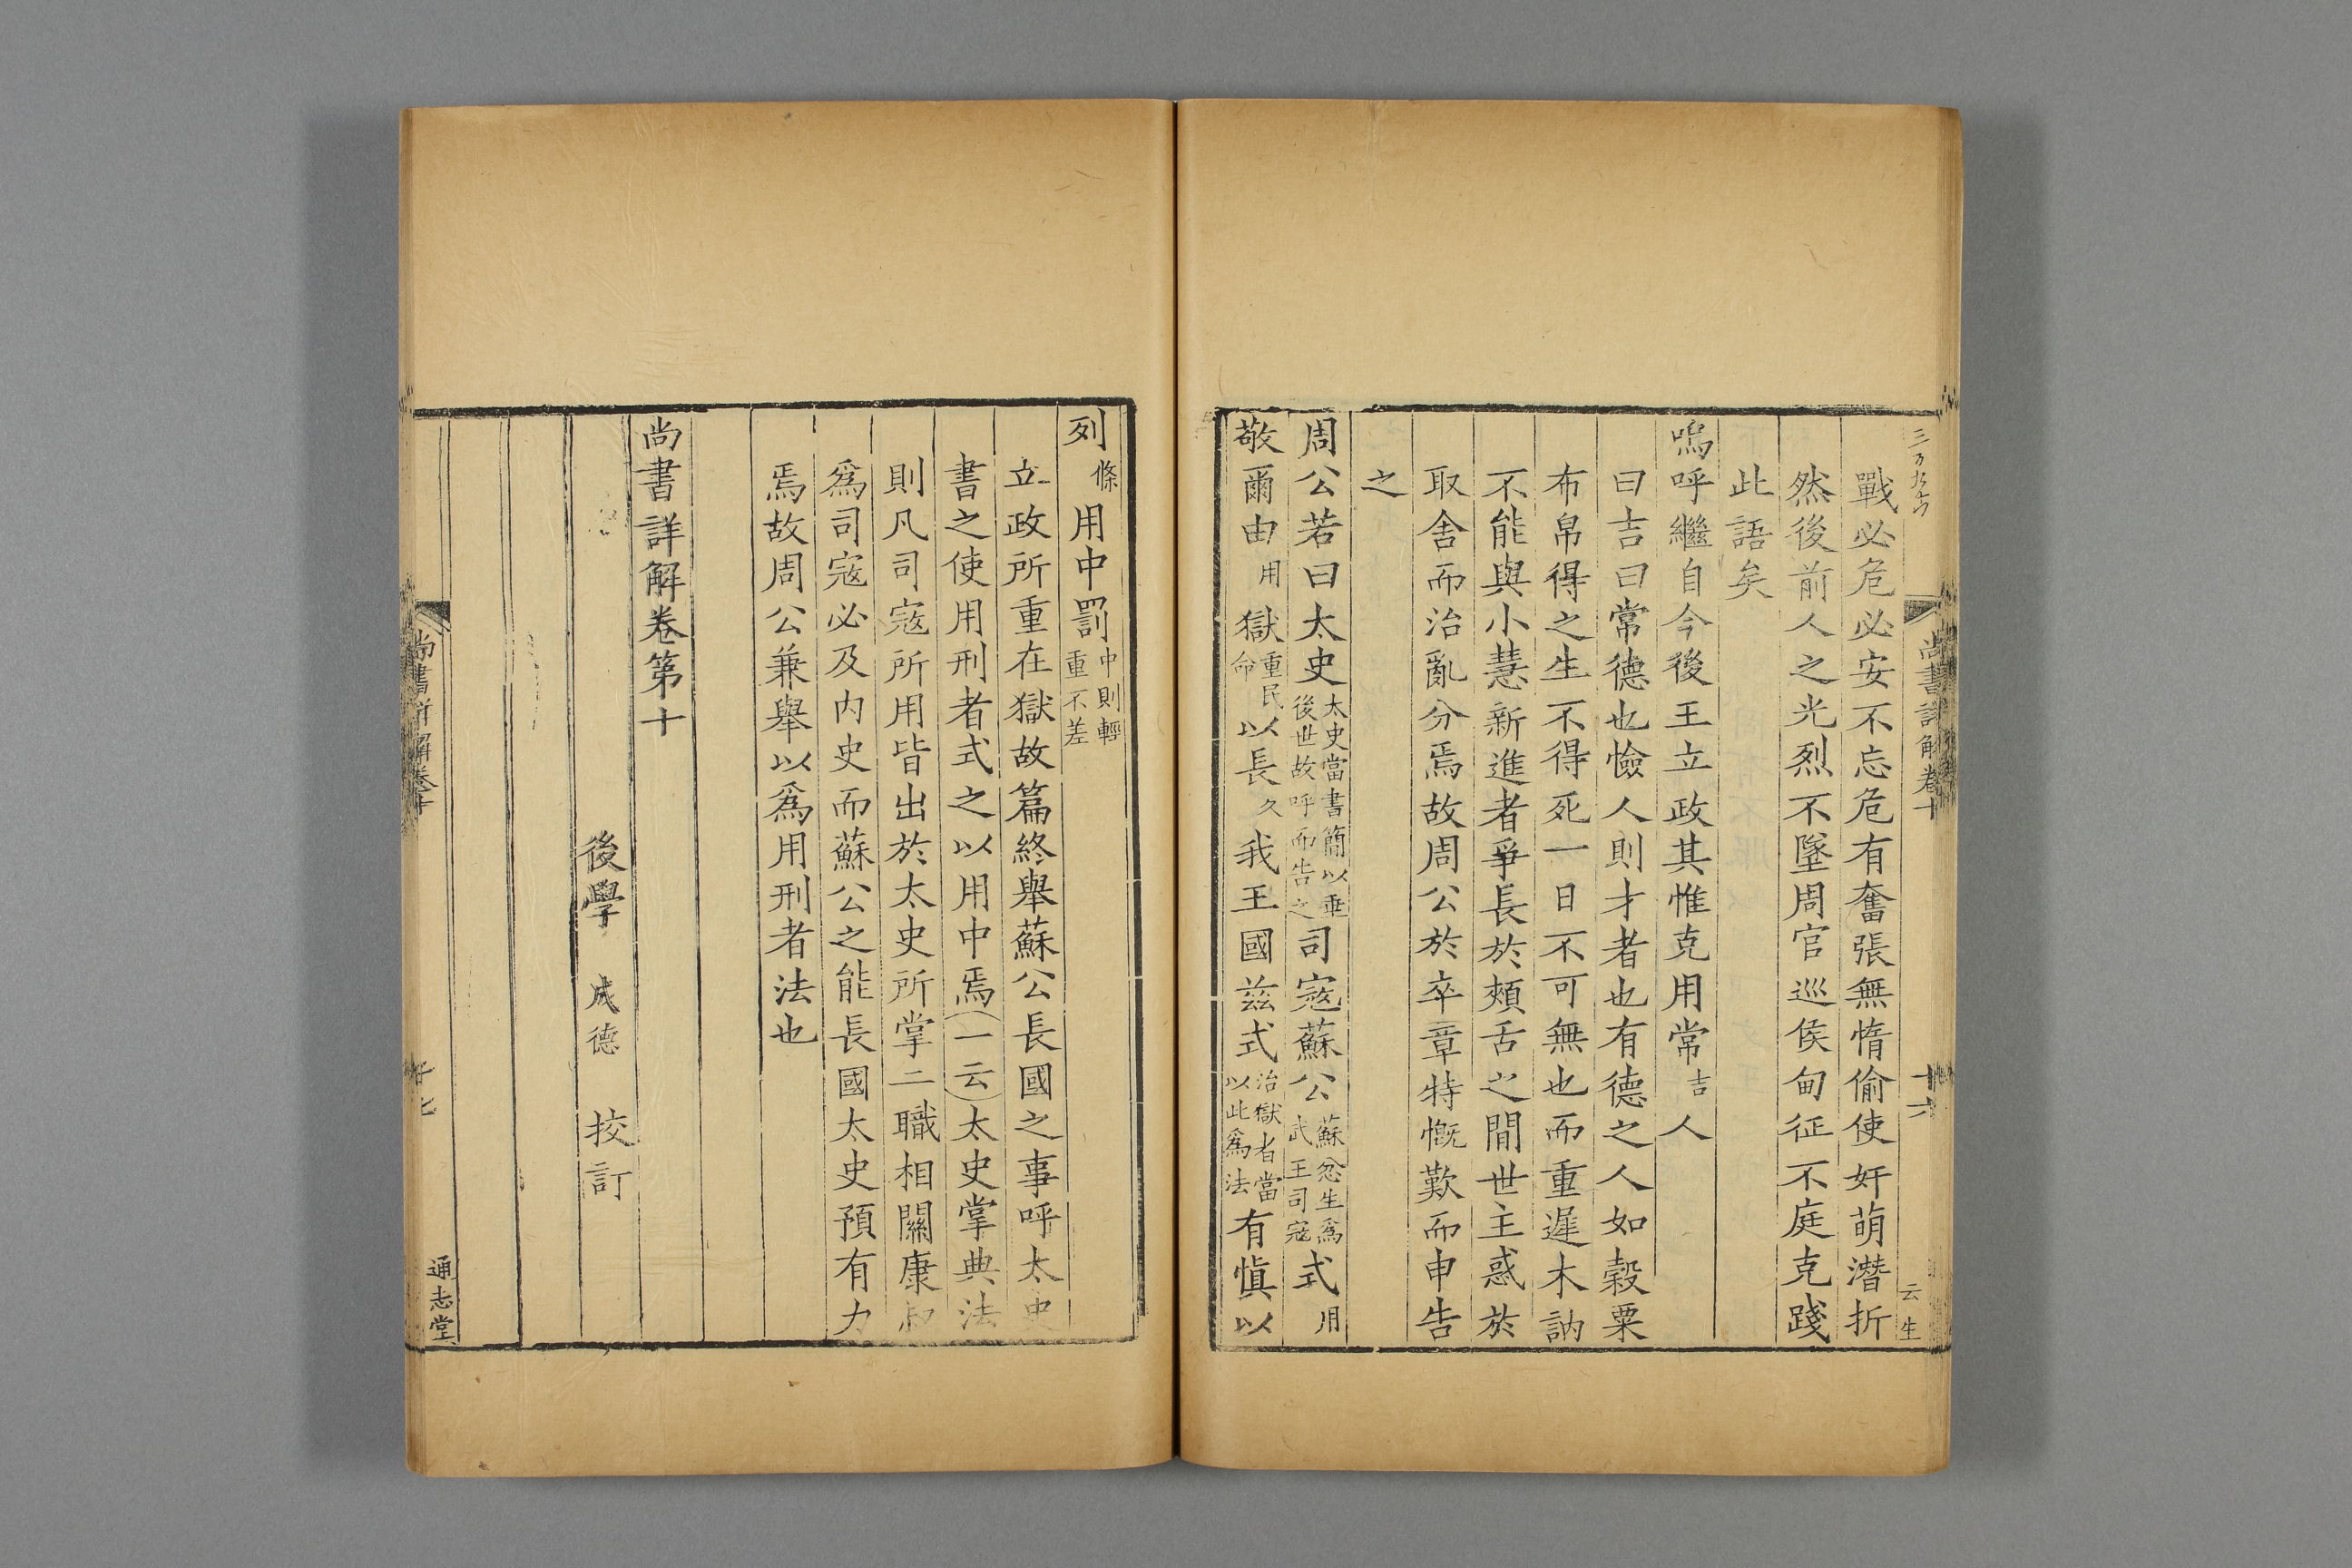 尚書詳解卷十
十六
云生
戰必危必安不忘危有奮張無惰偷使奸萌潛折
然後前人之光烈不墜周官巡侯甸征不庭克踐
此語矣
嗚呼繼自今後王立政其惟克用常吉人
曰吉曰常德也憸人則才者也有德之人如榖粟
布帛得之生不得死一日不可無也而重遲木訥
不能與小慧新進者爭長於頰舌之間世主惑於
取舍而治亂分焉故周公於卒章特慨歎而申告
之
周公若曰太史太史當書簡以垂後世故呼而告之司寇蘇公蘇忿生爲武王司寇式用
敬爾由用獄重民命以長久我王國茲式治獄者當以此爲法有愼以
列條用中罰中則輕重不差
立政所重在獄故篇終舉蘇公長國之事呼太史
書之使用刑者式之以用中焉(一云)太史掌典法
則凡司寇所用皆出於太史所掌二職相關康叔
爲司寇必及內史而蘇公之能長國太史預有力
焉故周公兼舉以爲用刑者法也
尚書詳解卷第十
後學 成德 挍訂
尚書詳解卷十
通志堂